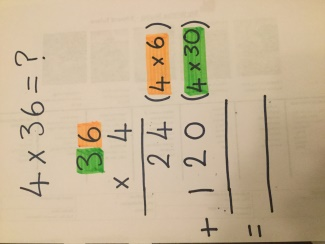 4 x 36 = ?
36
x 4
24 (4 x 6)
+ 120 (4 x 30)
=